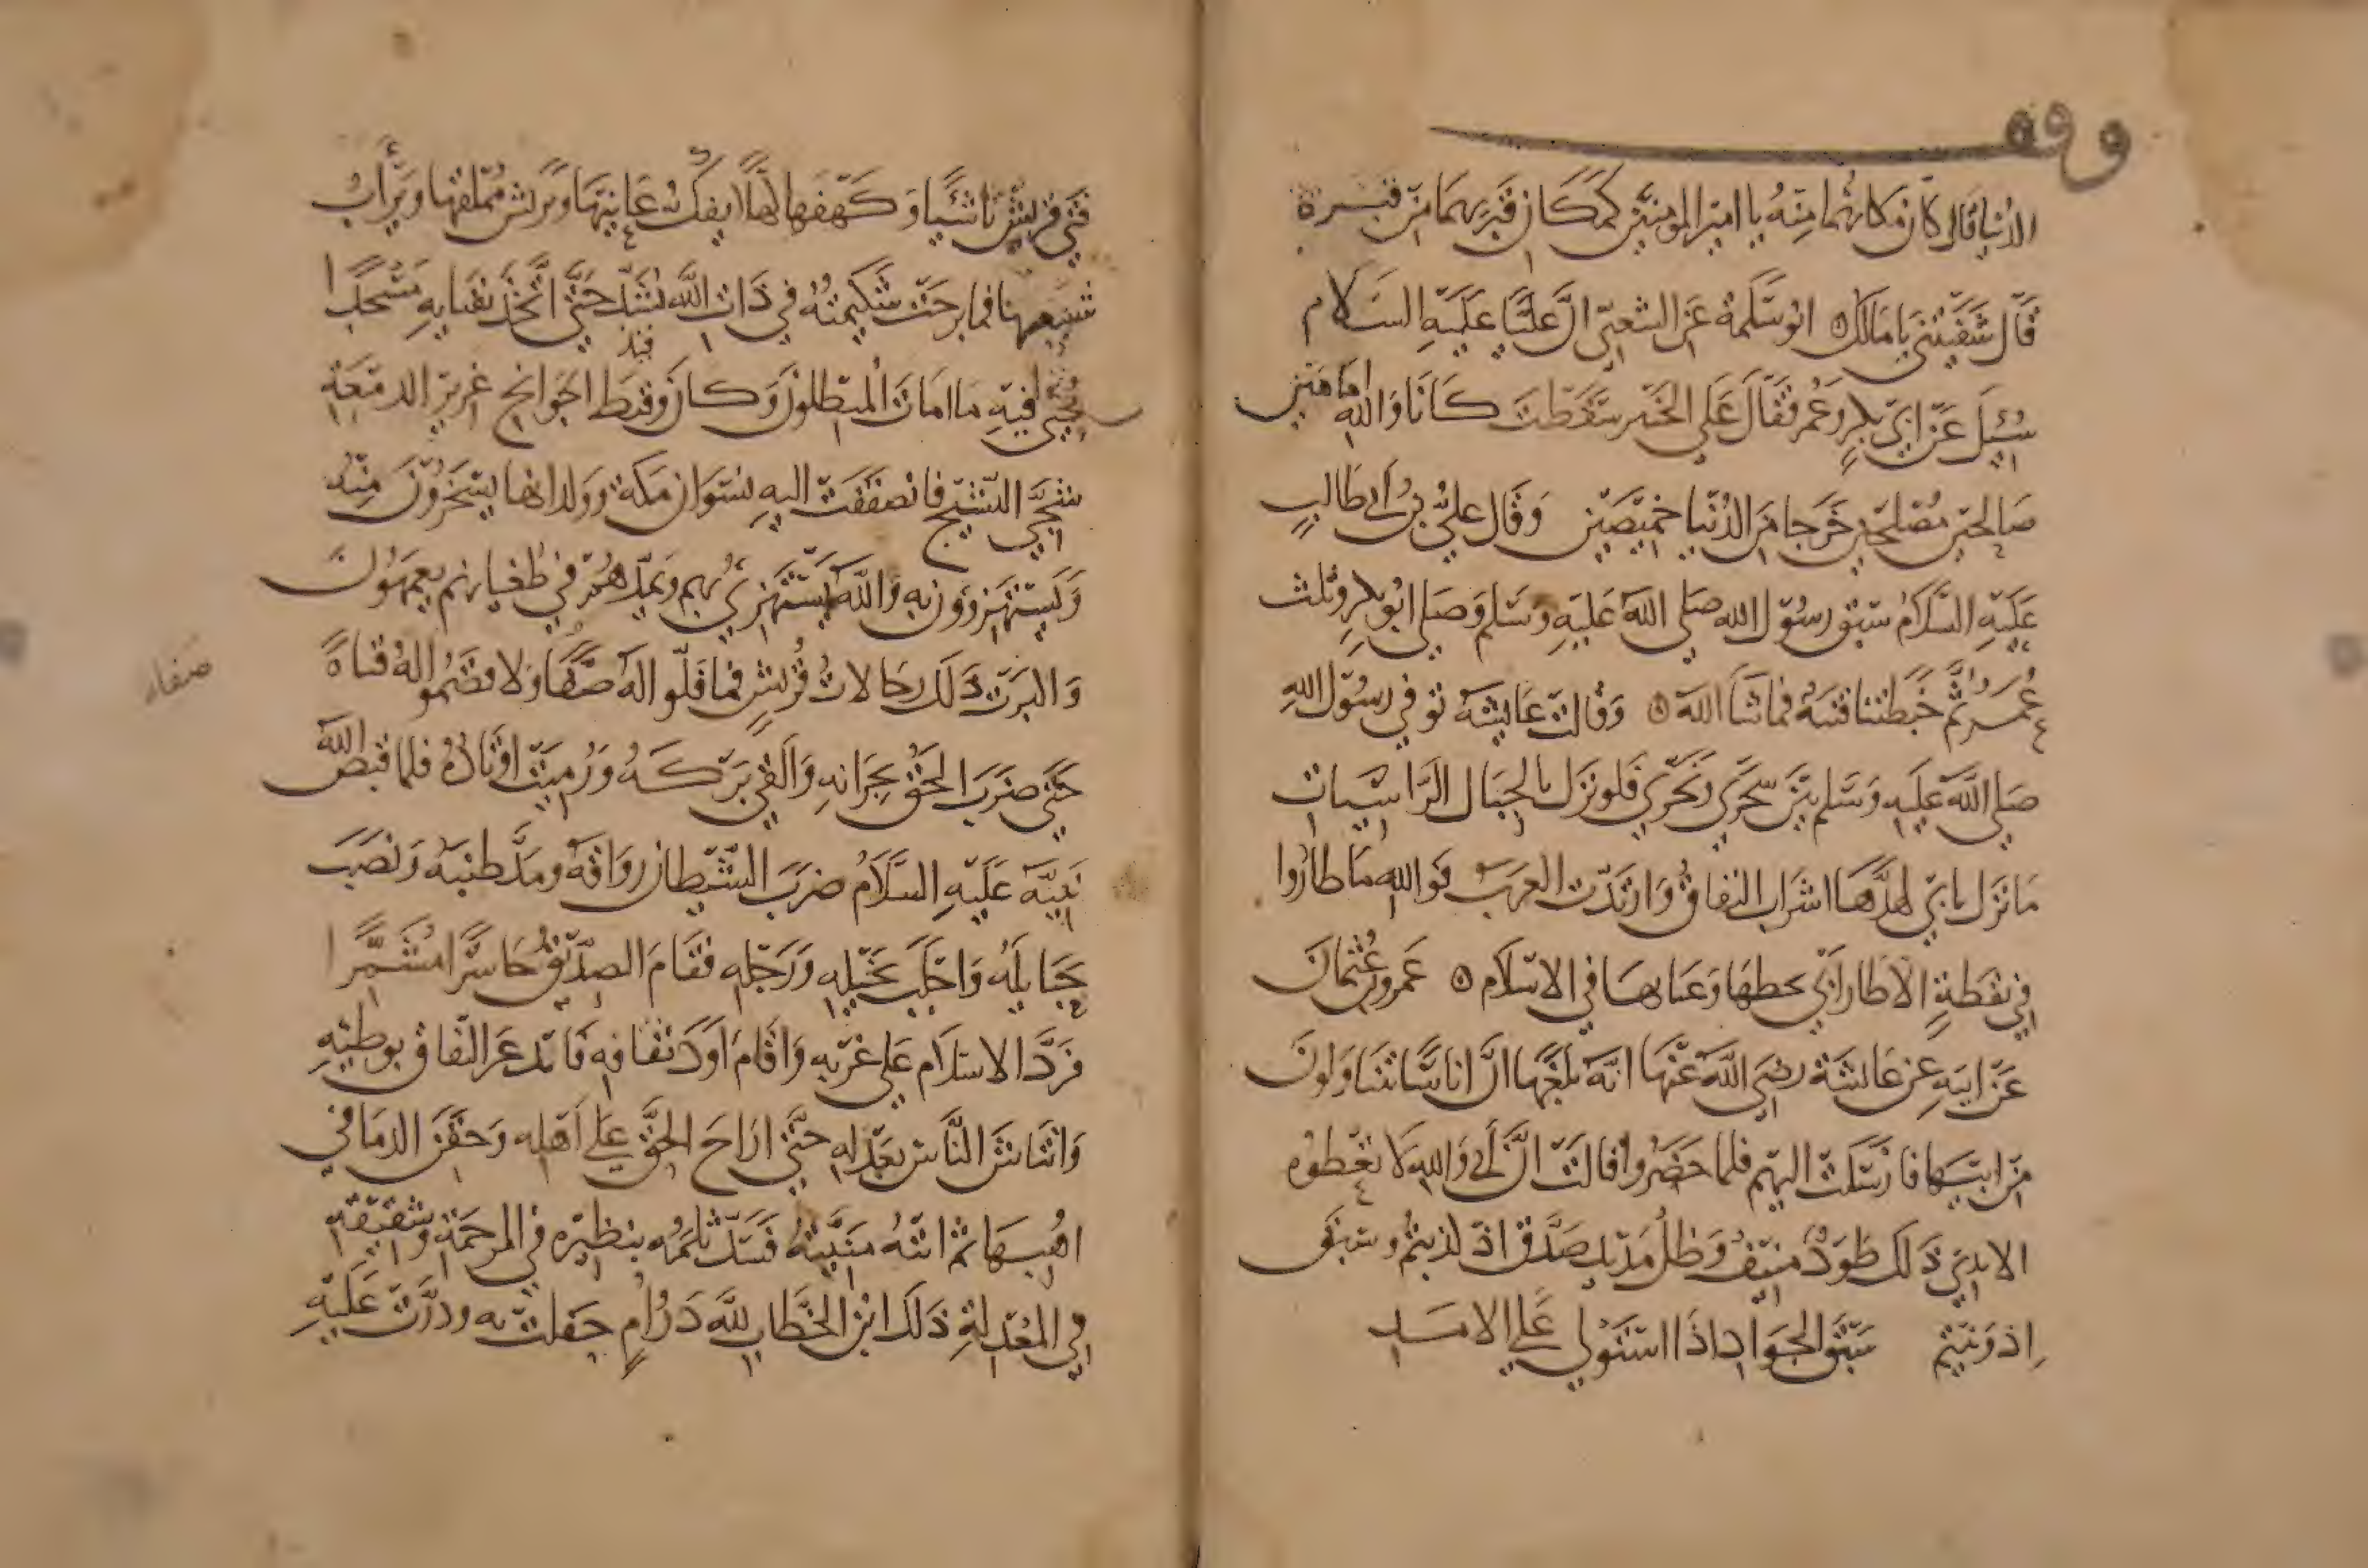 وقف
الدنيا قال كان مكانهما منه يا امير المومنين كمكان قبريهما من قبره
قال شفيتني يا مالك ابو سلمة عن الشعبي ان عليا عليه السلام
سئل عن ابي بكر وعمر فقال على الخبير سقطت كانا والله امامين
صالحين مصلحين خرجا من الدنيا خميصين وقال علي بن ابي طالب
عليه السلام سبق رسول الله صلى الله عليه وسلم وصلى ابو بكر وثلث
عمر ثم خبطتنا فتنة فما شا الله وقالت عايشة توفي رسول الله
صلى الله عليه وسلم بين سحري ونحري فلو نزل بالجبال الراسيات
ما نزل بابي لهدها اشراب النفاق وارتدت العرب فوالله ما طاروا
في نقطة الا طار ابي بحظها وعنابها في الاسلام عمرو بن عثمان
عن ابيه عن عايشة رضي الله عنها انه بلغها ان اناسا يتناولون
من ابيها فارسلت اليهم فلما حضروا قالت ان ابي والله لا تعطوه
الايدي ذلك طود منيف وظل مديد صدق اذ كذبتم وسبق
اذ ونيتم سبق الجواد اذا استولى على الامد
فتى قريش ناشيا وكهفها كهلا يفك عانيها ويريش مملقها ويراب
شعبها فما برحت شكيمته في ذات الله تشتد حتى اتخذ بفنايه مسجدا
يحيي فيه ما امات المبطلون وكان وقيظ الجوانح غزير الدمعة
شجي النشيج فانصفقت اليه نسوان مكة وولدانها يسخرون منه
ويستهزوون به والله يستهزي بهم ويمدهم في طغيانهم يعمهون
واكبرت ذلك رجالات قريش فما فلوا له صفاة ولا قصموا له قناة
صفاة
حتى ضرب الحق بجرانه والقى بركه ورميت اوتاده فلما قبض الله
نبيه عليه السلام ضرب الشيطان رواقه ومد طنبه ونصب
حبايله واجلب بخيله ورجله فقام الصديق حاسرا مشمرا
فرد الاسلام على غربه واقام اود ثقافه فابذعر النفاق بوطيه
وانتاش الناس بعدله حتى اراح الحق على اهله وحقن الدما في
اهبها ثم اتته منيته فسد ثلمه بنظيره في المرحمة وشقيقه
في المعدلة ذلك ابن الخطاب لله در ام حفلت به ودرت عليه